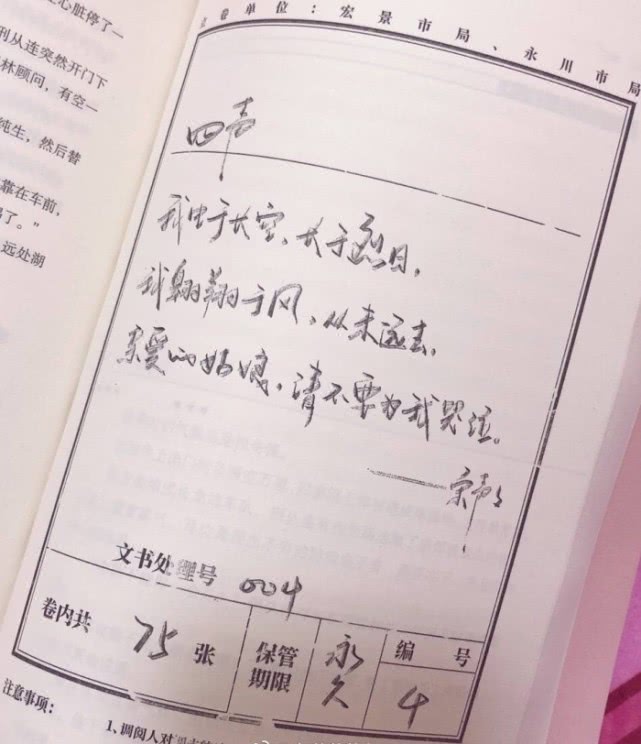 心脏停了一
刑从连突然开门下
林顾问，有空一
纯生，然后替
靠在车前，
了。”
远处湖
卷单位：宏景市局、永川市局
四声
我生于长空、长于烈日，
我翱翔于风、从未远去，
亲爱的姑娘，请不要为我哭泣。
——宋声声
文书处理号 004
卷内共 75 张
保管期限 永久
编号 4
注意事项：
1、调阅人对